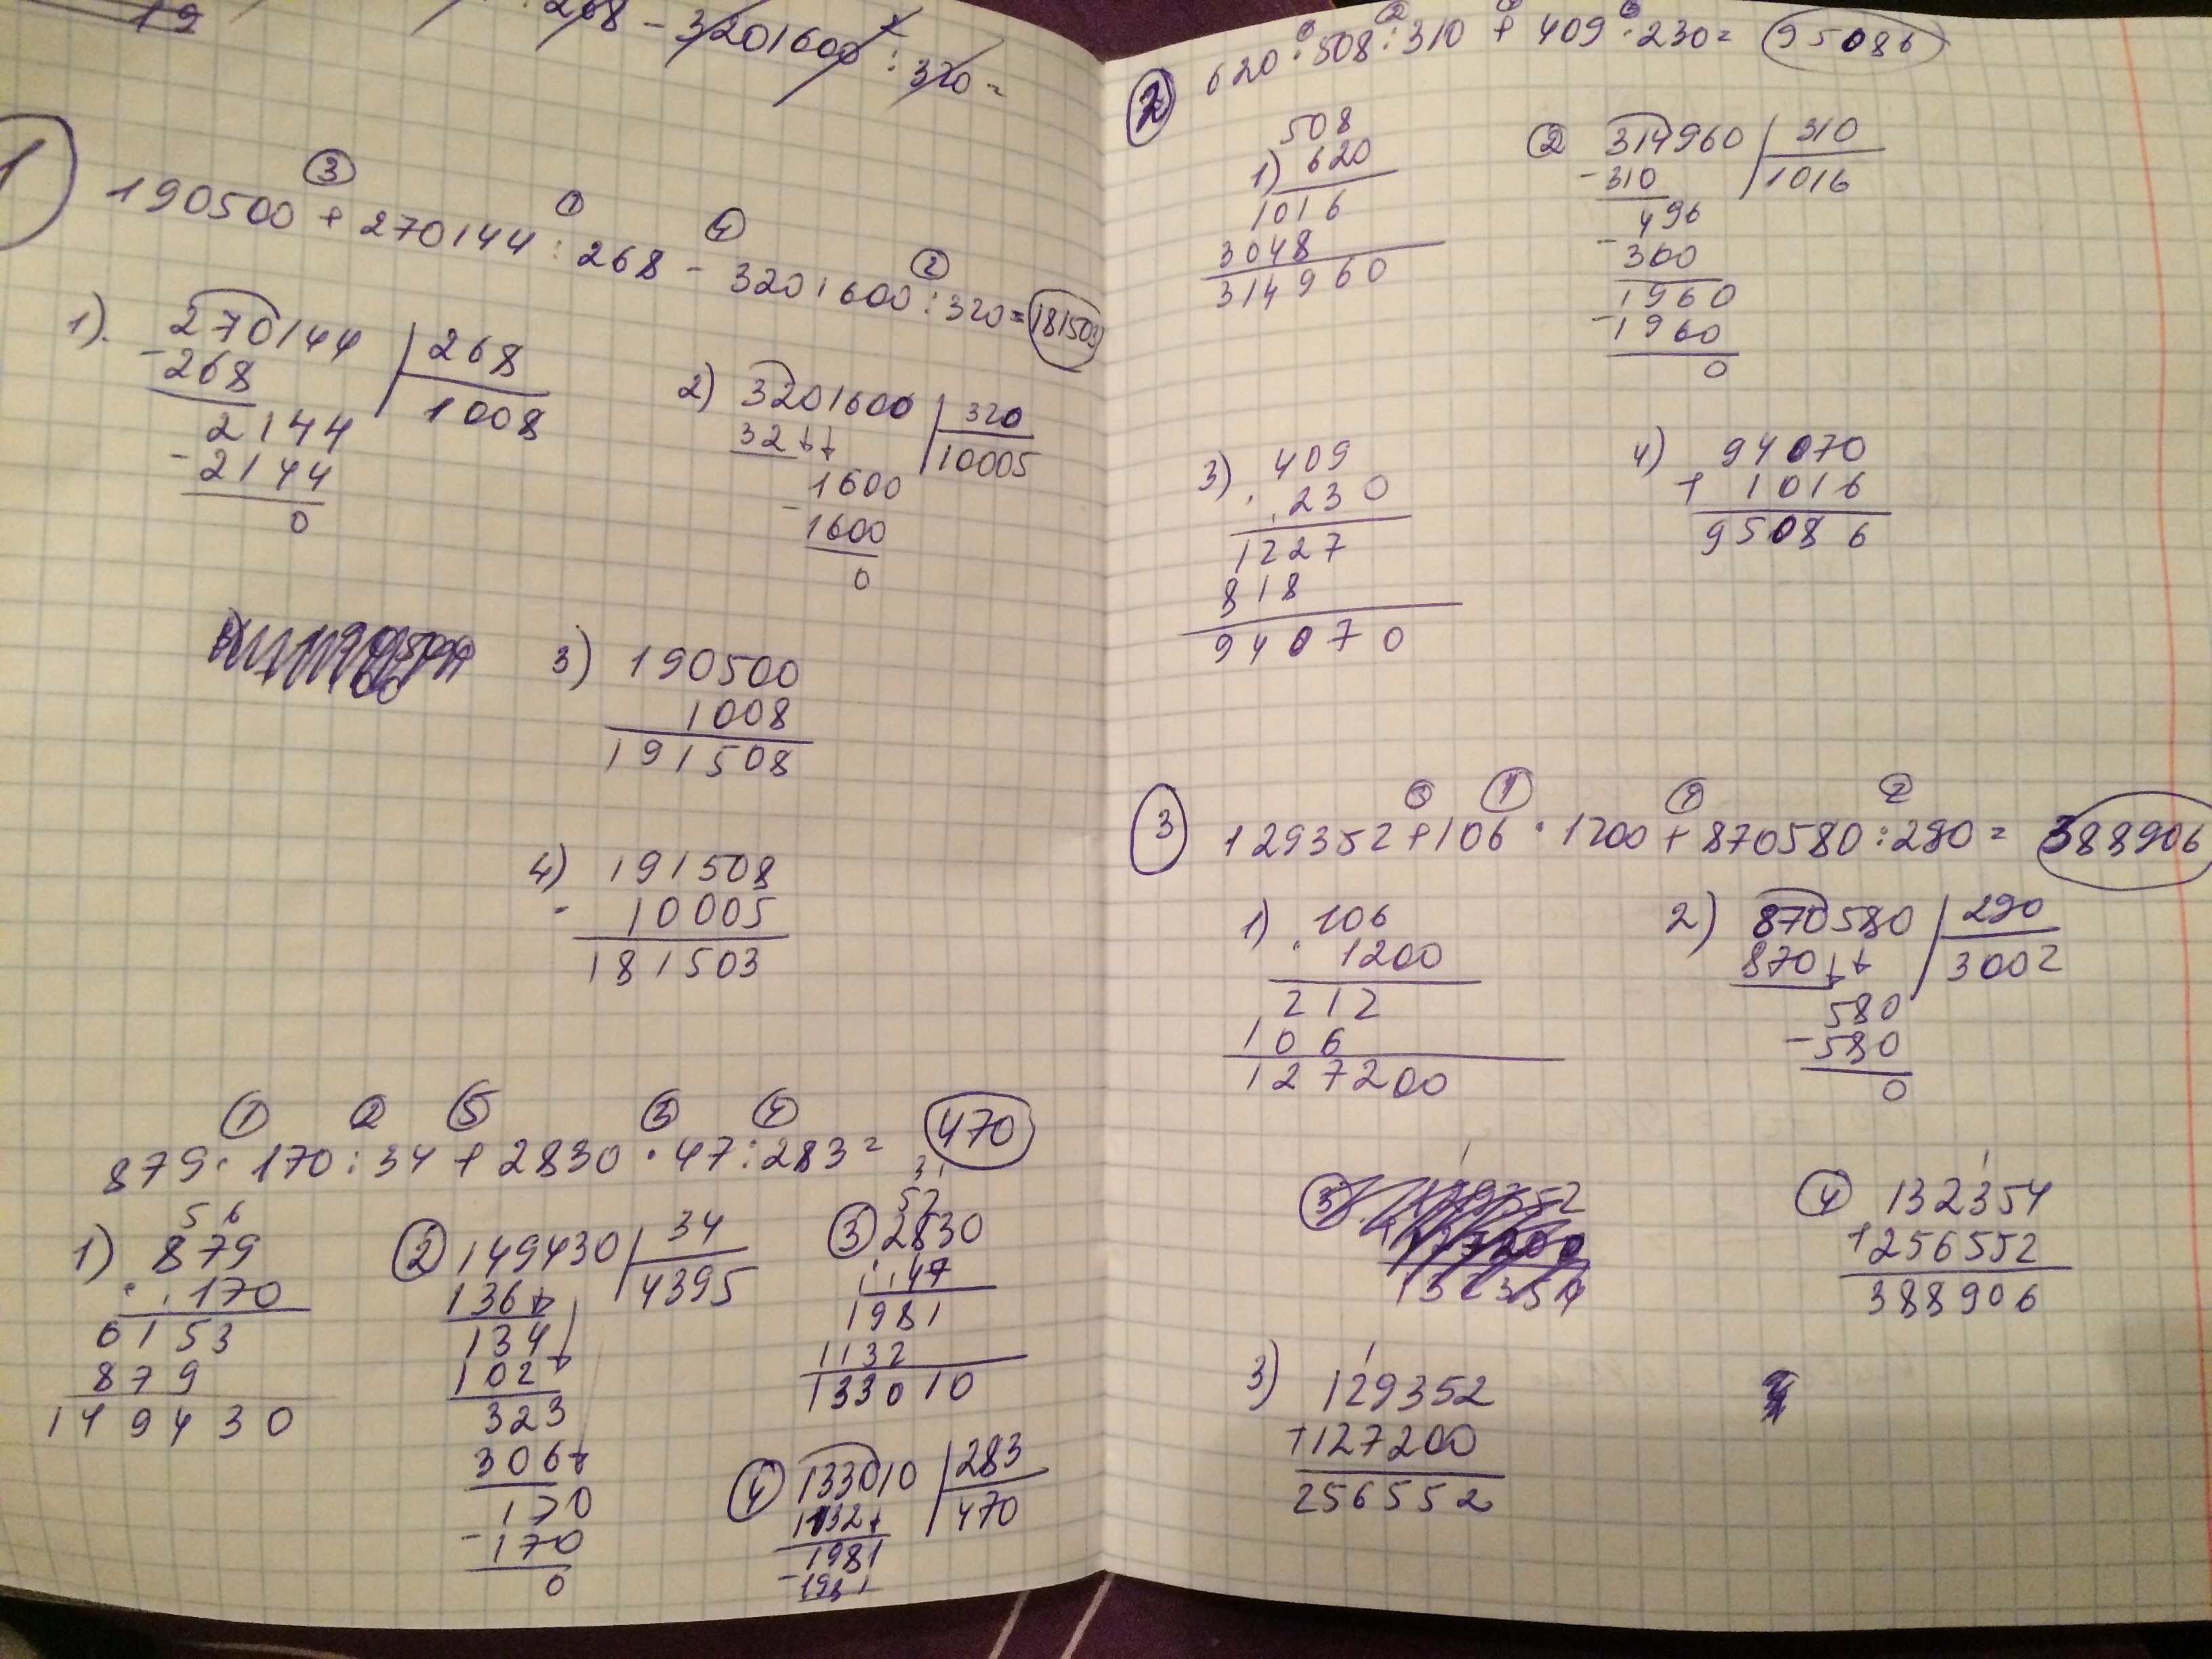 19
: 268 - 3201600 : 320 =
1
③ ① ④ ②
190500 + 270144 : 268 - 3201600 : 320 = 181503
1). 270144 | 268
- 268 | 1008
2144
- 2144
0
2) 3201600 | 320
32 | 10005
1600
- 1600
0
3) 190500
1008
191508
4) 191508
- 10005
181503
① ② ⑤ ③ ④
879 · 170 : 34 + 2830 · 47 : 283 = 470
5 6
1) 879
· 170
6153
879
149430
② 149430 | 34
136 | 4395
134
102
323
306
170
- 170
0
3 1
5 2
③ 2830
· 47
1981
1132
133010
④ 133010 | 283
1132 | 470
1981
- 1981
2
620 · 508 : 310 + 409 · 230 = 95086
508
1) 620
1016
3048
314960
② 314960 | 310
- 310 | 1016
496
- 300
1960
- 1960
0
3) 409
· 230
1227
818
94070
4) 94070
+ 1016
95086
3
③ ① ④ ②
129352 + 106 · 1200 + 870580 : 290 = 388906
1) 106
· 1200
212
106
127200
2) 870580 | 290
870 | 3002
580
- 580
0
1
④ 132354
+ 256552
388906
1
3) 129352
+ 127200
256552